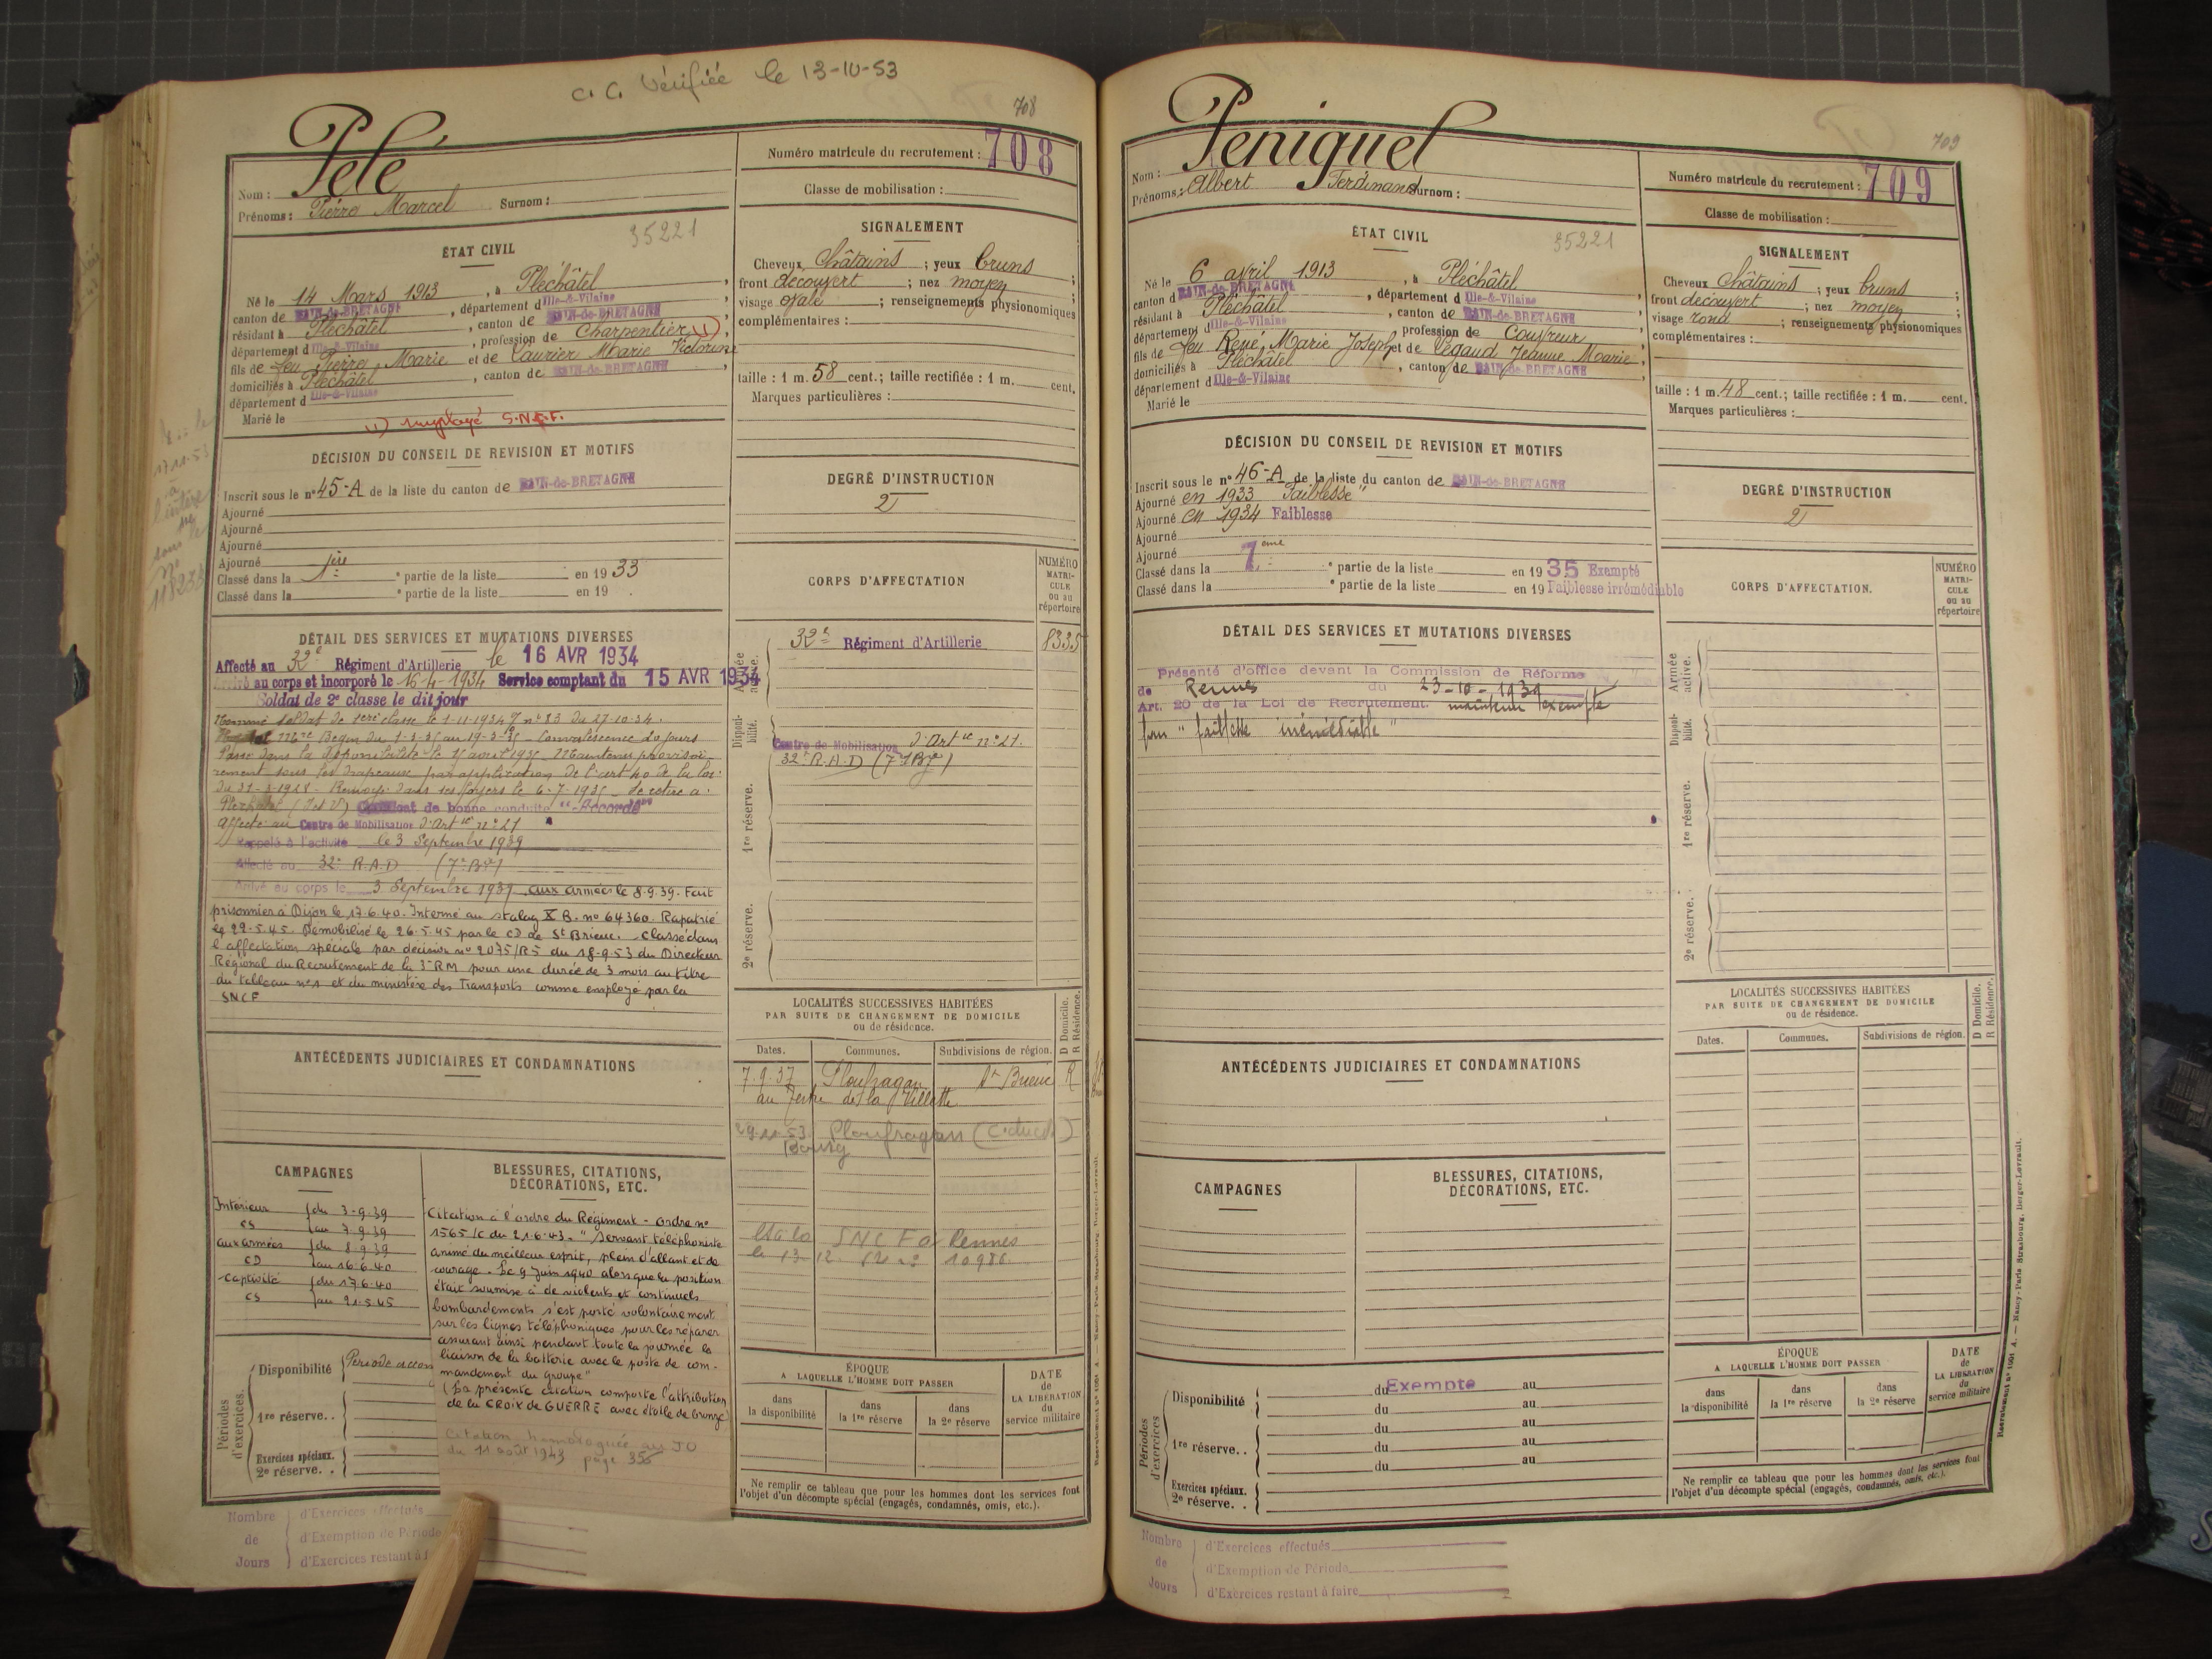 C. C. Vérifiée le 13-10-53
708
Nom : Pelé
Prénoms : Pierre Marcel Surnom :
Numéro matricule du recrutement : 708
Classe de mobilisation :
ÉTAT CIVIL
35221
Né le 14 Mars 1913, à Pléchâtel,
canton de BAIN-de-BRETAGNE, département d Ille-&-Vilaine
résidant à Pléchâtel, canton de BAIN-de-BRETAGNE,
département d Ille-&-Vilaine, profession de Charpentier (1),
fils de feu Pierre Marie et de Laurier Marie Victorine
domiciliés à Pléchâtel, canton de BAIN-de-BRETAGNE,
département d Ille-&-Vilaine
Marié le
(1) employé S.N.C.F.
SIGNALEMENT
Cheveux châtains ; yeux bruns ;
front découvert ; nez moyen ;
visage ovale ; renseignements physionomiques
complémentaires :
taille : 1 m. 58 cent.; taille rectifiée : 1 m. cent.
Marques particulières :
DÉCISION DU CONSEIL DE REVISION ET MOTIFS
Inscrit sous le n° 45-A de la liste du canton de BAIN-de-BRETAGNE
Ajourné
Ajourné
Ajourné
Ajourné
Classé dans la 1ère partie de la liste en 1933
Classé dans la e partie de la liste en 19 .
DEGRÉ D'INSTRUCTION
2
DÉTAIL DES SERVICES ET MUTATIONS DIVERSES
Affecté au 32e Régiment d'Artillerie le 16 AVR 1934
au corps et incorporé le 16-4-1934 Service comptant du 15 AVR 1934
Soldat de 2e classe le dit jour
Nommé soldat de 1ère classe le 1-11-1934 n° 83 du 27-10-34.
Begin du 1-3-35 au 19-3-35 - Convalescence 20 jours
Passé dans la disponibilité le 15 avril 1935 - Maintenu provisoi-
rement sous les drapeaux par application de l'art 40 de la loi
du 31-3-1928 - Renvoyé dans ses foyers le 6-7-1935 - Se retire à
Pléchâtel (I et V) Certificat de bonne conduite "Accordé"
Affecté au Centre de Mobilisation d'Artie n° 21
Rappelé à l'activité le 3 Septembre 1939
Affecté au 32e R.A.D (7e Bie)
Arrivé au corps le 3 Septembre 1939 aux armées le 8.9.39. Fait
prisonnier à Dijon le 17.6.40. Interné au stalag X B. n° 64360. Rapatrié
le 22.5.45. Démobilisé le 26.5.45 par le CD de St Brieuc. Classé dans
l'affectation spéciale par décision n° 2075/RS du 18.9.53 du Directeur
Régional du Recrutement de la 3e RM pour une durée de 3 mois au titre
du tableau n°1 et du ministère des Transports comme employé par la
SNCF
CORPS D'AFFECTATION
NUMÉRO MATRICULE ou au répertoire
Armée active.
32e Régiment d'Artillerie 8335
Disponibilité.
Centre de Mobilisation d'Artie n° 21.
32e R.A.D (7e Bie)
1re réserve.
2e réserve.
ANTÉCÉDENTS JUDICIAIRES ET CONDAMNATIONS
LOCALITÉS SUCCESSIVES HABITÉES
PAR SUITE DE CHANGEMENT DE DOMICILE
ou de résidence.
D Domicile.
R Résidence.
Dates. Communes. Subdivisions de région.
7.9.37 Ploufragan St Brieuc R
au Tertre de la Villette
29.11.53 Ploufragan (C. du N.)
Bourg
SNCF à Rennes
le 13 12 10986
CAMPAGNES
Intérieur du 3-9-39
CS au 7.9.39
aux armées du 8.9.39
CD au 16.6.40
captivité du 17.6.40
CS au 21.5.45
BLESSURES, CITATIONS,
DÉCORATIONS, ETC.
Citation à l'ordre du Régiment - ordre n°
1565/C du 21.6.43. "Servant téléphoniste
animé du meilleur esprit, plein d'allant et de
courage. Le 9 Juin 1940 alors que la position
était soumise à de violents et continuels
bombardements s'est porté volontairement
sur les lignes téléphoniques pour les réparer
assurant ainsi pendant toute la journée la
liaison de la batterie avec le poste de com-
mandement du groupe"
(La présente citation comporte l'attribution
de la CROIX de GUERRE avec étoile de bronze)
Citation homologuée au JO
du 11 août 1943 page 355
Périodes d'exercices.
Disponibilité Période accom
1re réserve. .
Exercices spéciaux.
2e réserve. .
ÉPOQUE
A LAQUELLE L'HOMME DOIT PASSER
DATE de LA LIBÉRATION du service militaire
dans la disponibilité dans la 1re réserve dans la 2e réserve
Ne remplir ce tableau que pour les hommes dont les services font
l'objet d'un décompte spécial (engagés, condamnés, omis, etc.).
Nombre de Jours
d'Exercices effectués
d'Exemption de Période
d'Exercices restant à f
709
Nom : Peniguel
Prénoms : Albert Ferdinand Surnom :
Numéro matricule du recrutement : 709
Classe de mobilisation :
ÉTAT CIVIL
35221
Né le 6 avril 1913, à Pléchâtel
canton d BAIN-de-BRETAGNE, département d Ille-&-Vilaine,
résidant à Pléchâtel, canton de BAIN-de-BRETAGNE,
département d Ille-&-Vilaine, profession de Couvreur,
fils de feu René, Marie Joseph et de Legaud Jeanne Marie,
domiciliés à Pléchâtel, canton de BAIN-de-BRETAGNE,
département d Ille-&-Vilaine
Marié le
SIGNALEMENT
Cheveux châtains ; yeux bruns ;
front découvert ; nez moyen ;
visage rond ; renseignements physionomiques
complémentaires :
taille : 1 m. 48 cent.; taille rectifiée : 1 m. cent.
Marques particulières :
DÉCISION DU CONSEIL DE REVISION ET MOTIFS
Inscrit sous le n° 46-A de la liste du canton de BAIN-de-BRETAGNE
Ajourné en 1933 "Faiblesse"
Ajourné en 1934 Faiblesse
Ajourné
Ajourné
Classé dans la 7ème partie de la liste en 1935 Exempté
Classé dans la e partie de la liste en 19 Faiblesse irrémédiable
DEGRÉ D'INSTRUCTION
2
DÉTAIL DES SERVICES ET MUTATIONS DIVERSES
Présenté d'office devant la Commission de Réforme
de Rennes du 23-10-1939
Art. 20 de la Loi de Recrutement. maintenu exempté
pour "faiblesse irrémédiable"
CORPS D'AFFECTATION.
NUMÉRO MATRICULE ou au répertoire
Armée active.
Disponibilité.
1re réserve.
2e réserve.
ANTÉCÉDENTS JUDICIAIRES ET CONDAMNATIONS
LOCALITÉS SUCCESSIVES HABITÉES
PAR SUITE DE CHANGEMENT DE DOMICILE
ou de résidence.
D Domicile.
R Résidence.
Dates. Communes. Subdivisions de région.
CAMPAGNES
BLESSURES, CITATIONS,
DÉCORATIONS, ETC.
Périodes d'exercices
Disponibilité du Exempté au
du au
1re réserve. . du au
du au
du au
Exercices spéciaux.
2e réserve. .
ÉPOQUE
A LAQUELLE L'HOMME DOIT PASSER
DATE de LA LIBÉRATION du service militaire
dans la disponibilité dans la 1re réserve dans la 2e réserve
Ne remplir ce tableau que pour les hommes dont les services font
l'objet d'un décompte spécial (engagés, condamnés, omis, etc.).
Nombre de Jours
d'Exercices effectués
d'Exemption de Période
d'Exercices restant à faire